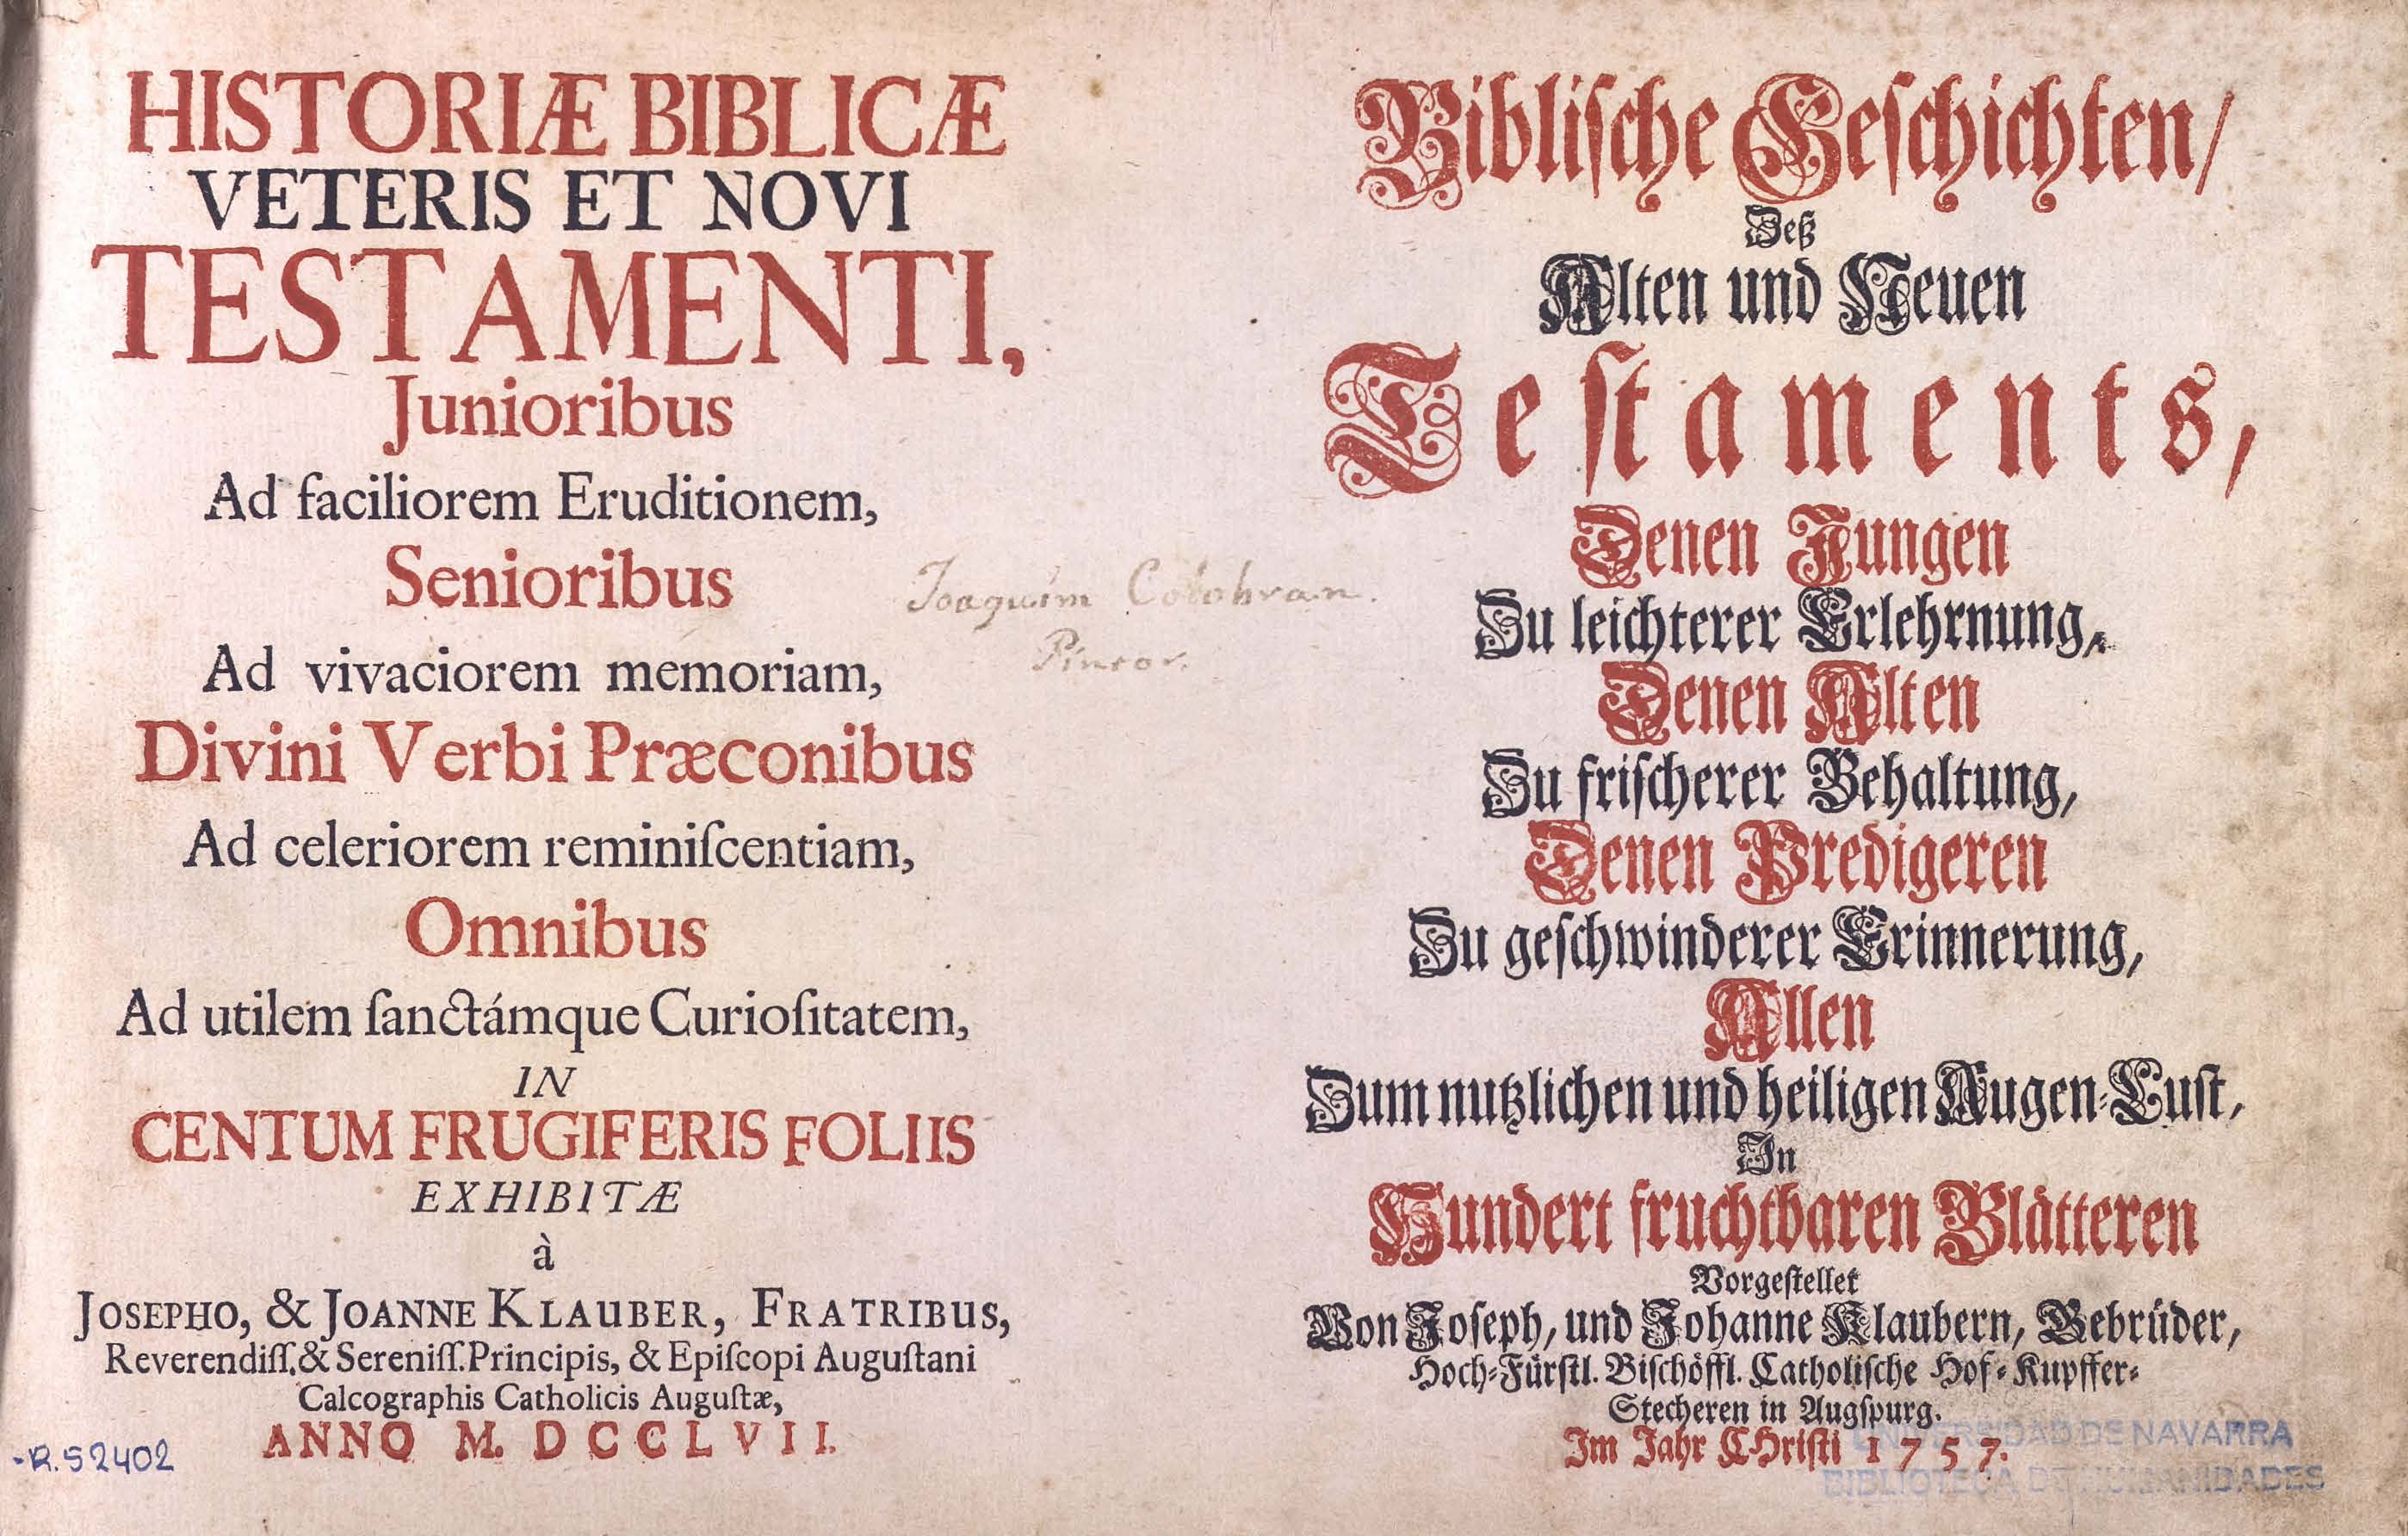 HISTORIÆ BIBLICÆ
VETERIS ET NOVI
TESTAMENTI,
Junioribus
Ad faciliorem Eruditionem,
Senioribus
Ad vivaciorem memoriam,
Divini Verbi Præconibus
Ad celeriorem reminiſcentiam,
Omnibus
Ad utilem ſanctámque Curioſitatem,
IN
CENTUM FRUGIFERIS FOLIIS
EXHIBITÆ
à
JOSEPHO, & JOANNE KLAUBER, FRATRIBUS,
Reverendiſſ. & Sereniſſ. Principis, & Epiſcopi Auguſtani
Calcographis Catholicis Auguſtæ,
ANNO M. DCCLVII.
R. 52402
Joaquim Colobran.
Pintor.
Bibliſche Geſchichten/
Deß
Alten und Neuen
Teſtaments,
Denen Jungen
Zu leichterer Erlehrnung,
Denen Alten
Zu friſcherer Behaltung,
Denen Predigeren
Zu geſchwinderer Erinnerung,
Allen
Zum nutzlichen und heiligen Augen-Luſt,
In
Hundert fruchtbaren Blätteren
Vorgeſtellet
Von Joſeph, und Johanne Klaubern, Gebrüder,
Hoch-Fürſtl. Biſchöffl. Catholiſche Hof-Kupffer-
Stecheren in Augſpurg.
Im Jahr CHriſti 1757.
UNIVERSIDAD DE NAVARRA
BIBLIOTECA DE HUMANIDADES